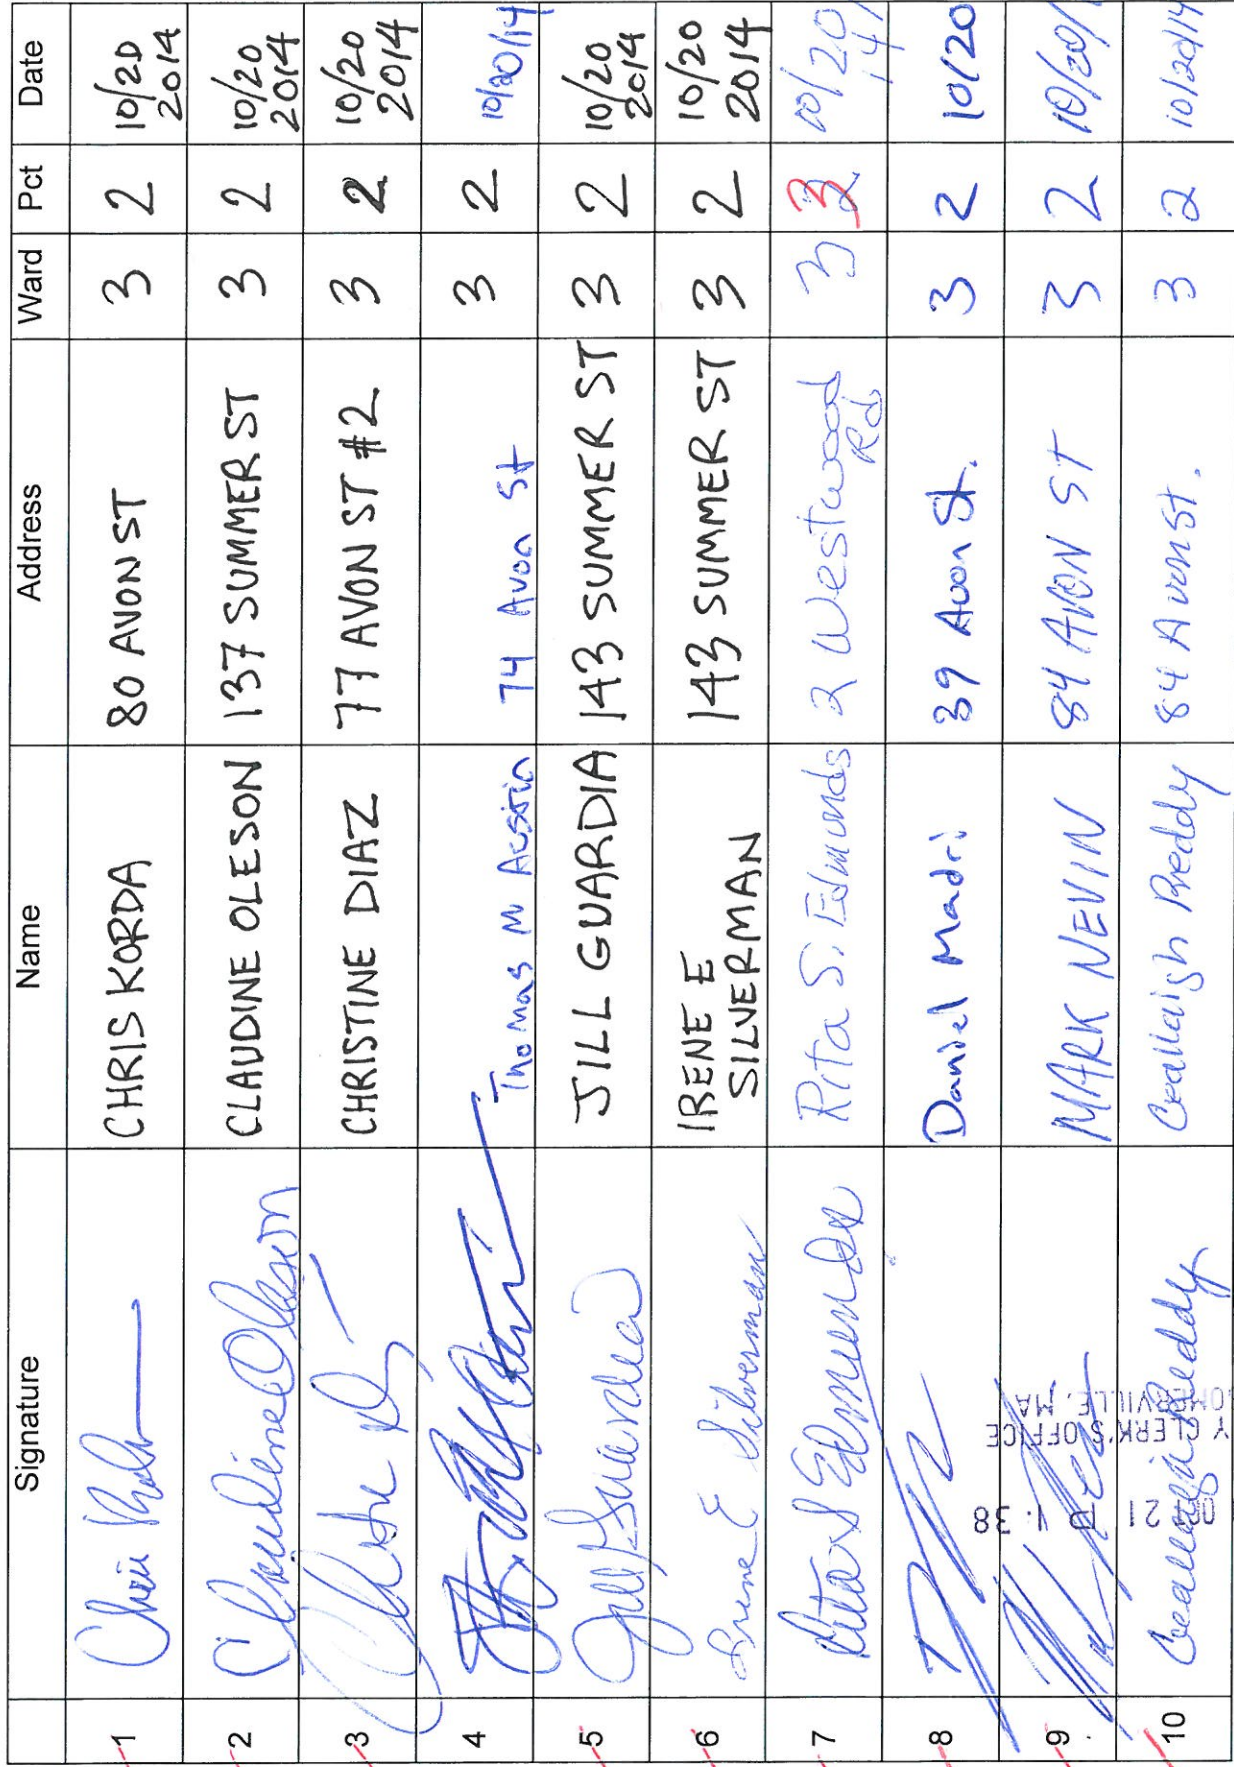 Signature Name Address Ward Pct Date
1 Chris Korda CHRIS KORDA 80 AVON ST 3 2 10/20 2014
2 Claudine Oleson CLAUDINE OLESON 137 SUMMER ST 3 2 10/20 2014
3 CHRISTINE DIAZ 77 AVON ST #2 3 2 10/20 2014
4 Thomas M Austin 74 Avon St 3 2 10/20/14
5 Jill Guardia JILL GUARDIA 143 SUMMER ST 3 2 10/20 2014
6 Irene E Silverman IRENE E SILVERMAN 143 SUMMER ST 3 2 10/20 2014
7 Rita S Edmunds Rita S. Edmunds 2 Westwood Rd. 3 3 10/20 14
8 Daniel Madri 39 Avon St. 3 2 10/20
9 MARK NEVIN 84 AVON ST 3 2 10/20/1
10 Ceallaigh Reddy Ceallaigh Reddy 84 Avon St. 3 2 10/20/14
21 P 1:38
Y CLERK'S OFFICE
OMERVILLE, MA